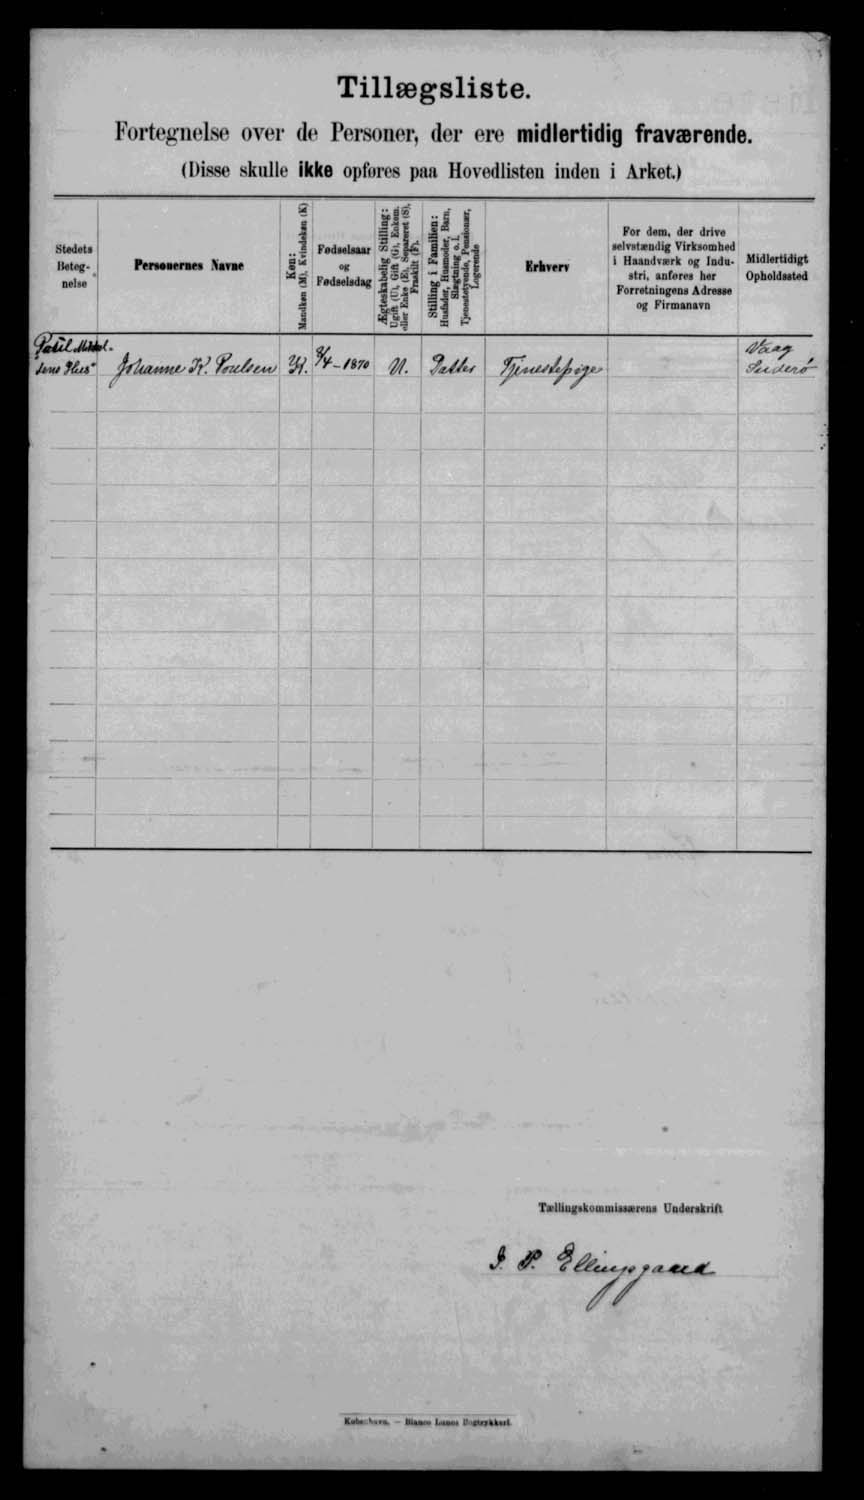 Tillægsliste.
Fortegnelse over de Personer, der ere midlertidig fraværende.
(Disse skulle ikke opføres paa Hovedlisten inden i Arket.)
Stedets
Beteg-
nelse
Personernes Navne
Køn:
Mandkøn (M), Kvindekøn (K)
Fødselsaar
og
Fødselsdag
Ægteskabelig Stilling:
Ugift (U), Gift (G), Enkem.
eller Enke (E), Separeret (S),
Fraskilt (F).
Stilling i Familien:
Husfader, Husmoder, Barn,
Slægtning o. l.
Tjenestetyende, Pensionær,
Logerende
Erhverv
For dem, der drive
selvstændig Virksomhed
i Haandværk og Indu-
stri, anføres her
Forretningens Adresse
og Firmanavn
Midlertidigt
Opholdssted
Johanne K. Poulsen K. /4-1870 U. Datter Tjenestepige
Vaag
Suderø
Tællingskommissærens Underskrift
J. P. Ellingsgaard
København. — Bianco Lunos Bogtrykkeri.